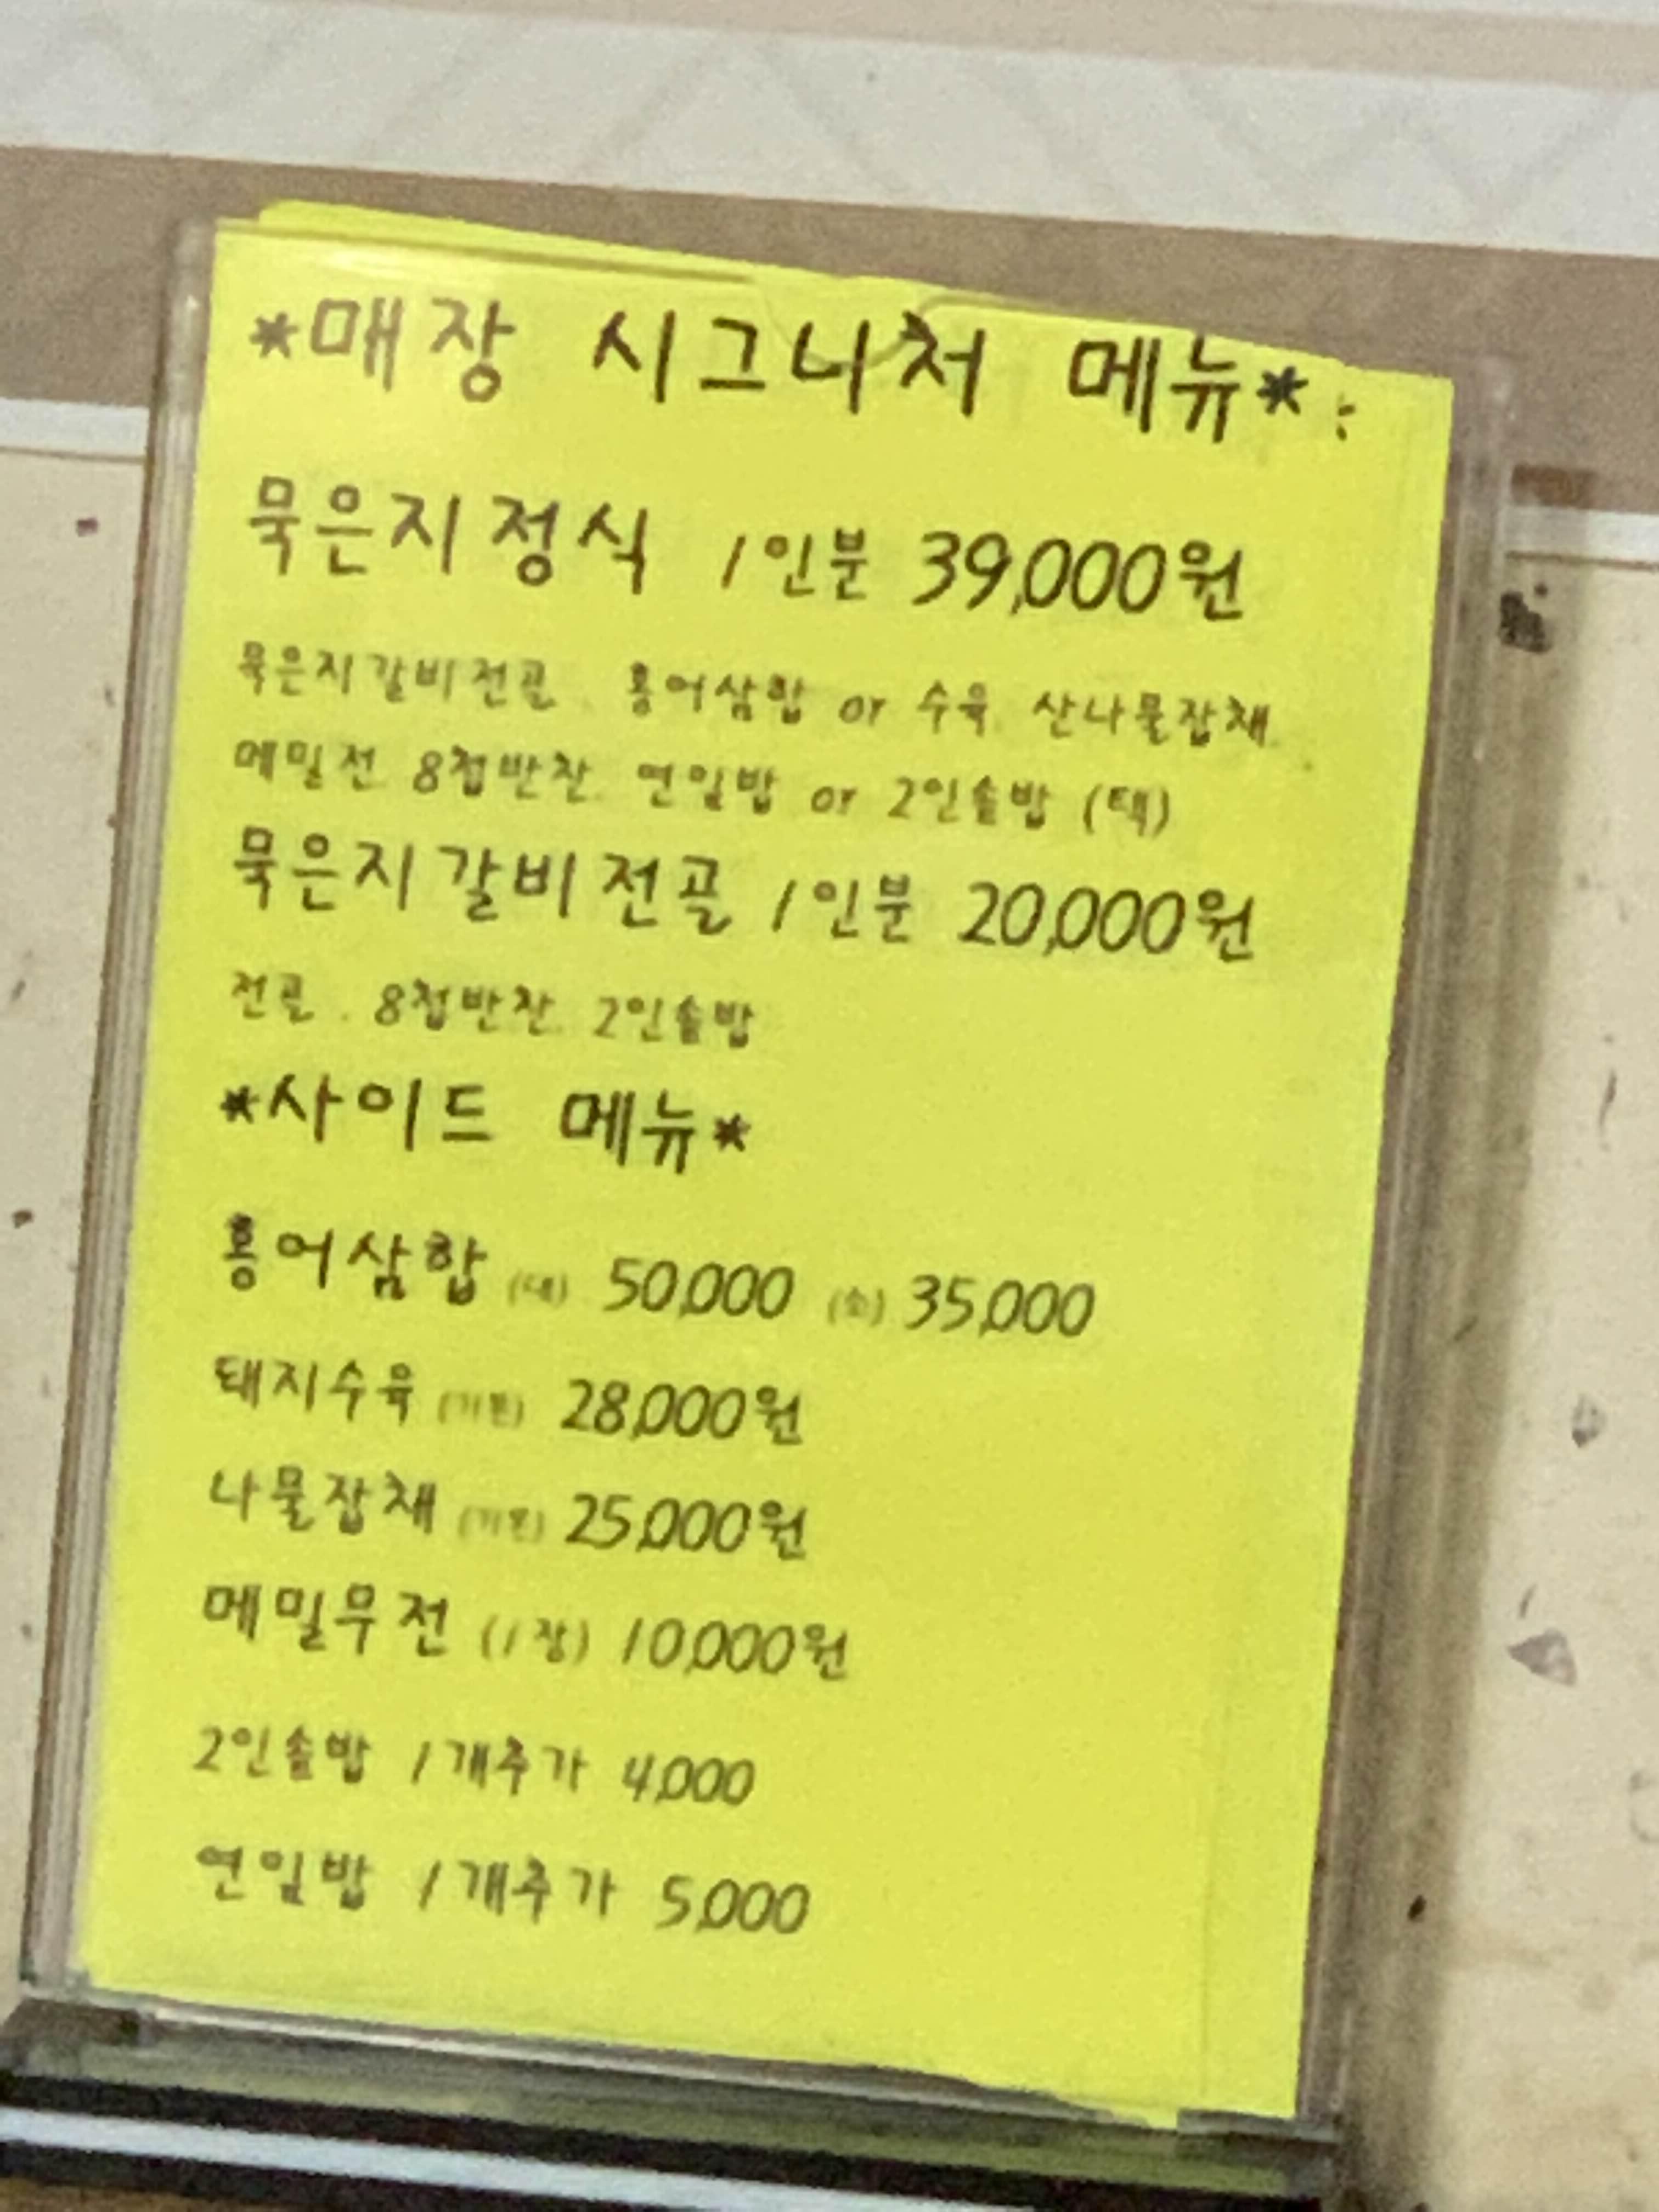 *매장 시그니처 메뉴* :
묵은지정식 1인분 39,000원
묵은지갈비전골. 홍어삼합 or 수육. 산나물잡채.
메밀전. 8첩반찬. 연잎밥 or 2인솥밥 (택)
묵은지갈비전골 1인분 20,000원
전골. 8첩반찬. 2인솥밥
*사이드 메뉴*
홍어삼합 (대) 50,000 (소) 35,000
돼지수육 (기본) 28,000원
나물잡채 (기본) 25,000원
메밀무전 (1장) 10,000원
2인솥밥 1개추가 4,000
연잎밥 1개추가 5,000